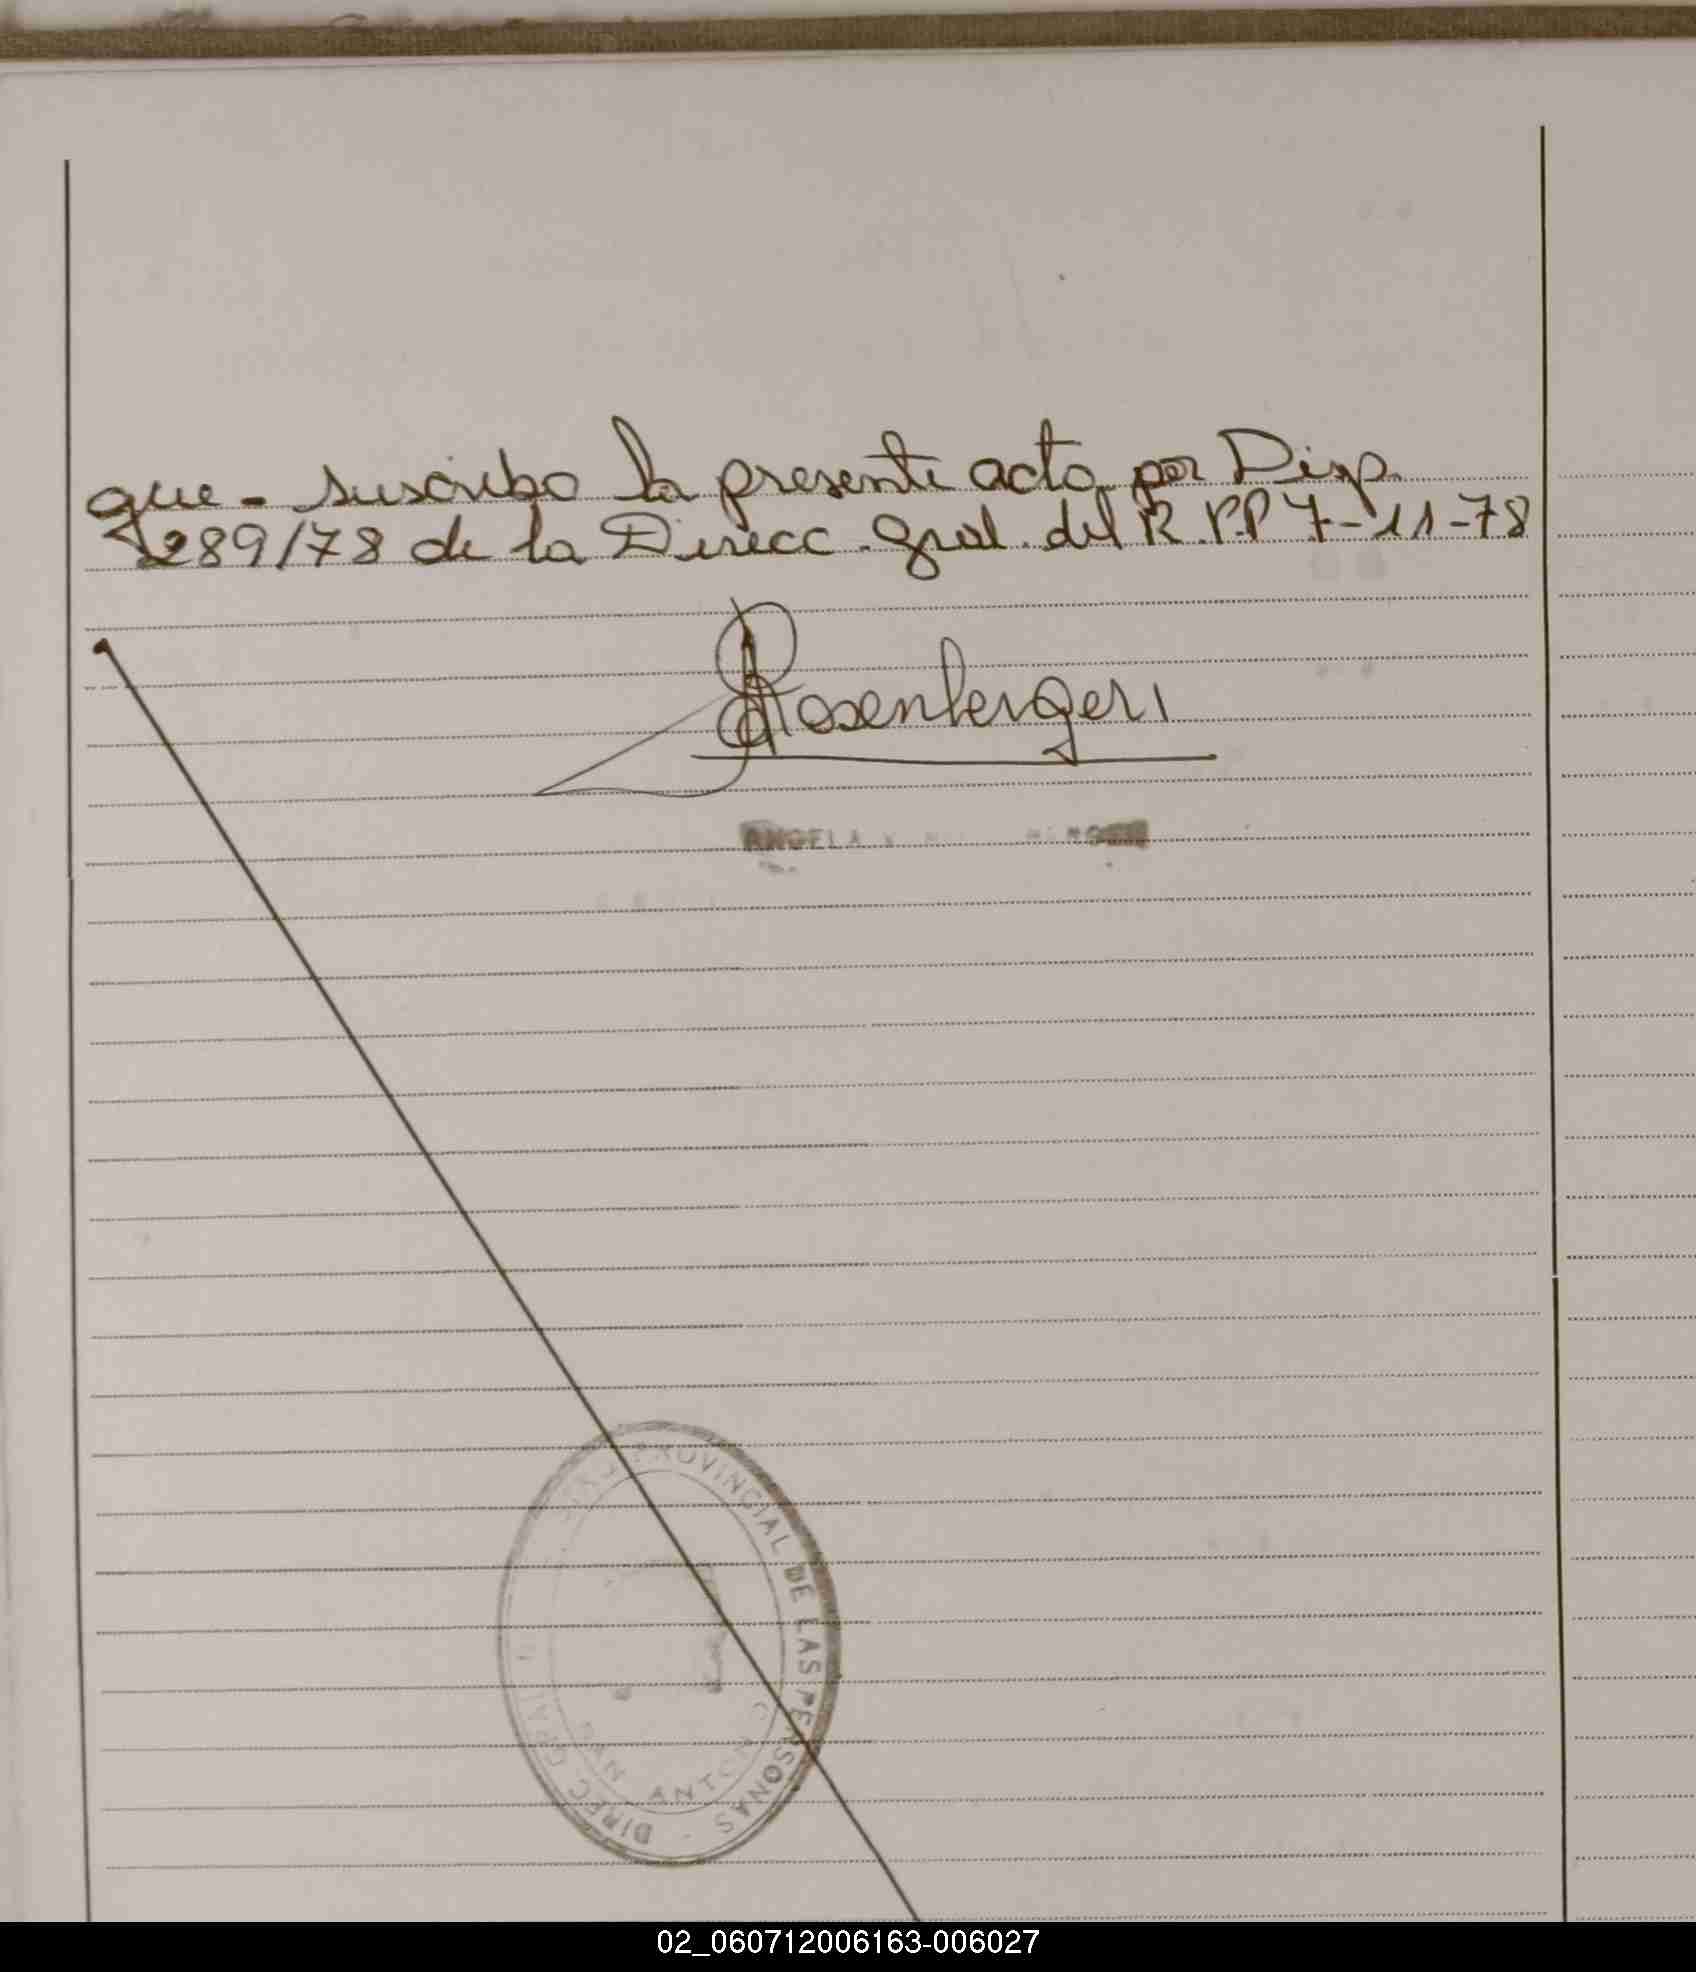 que - suscribo la presente acta por Disp.
289/78 de la Direcc. Gral. del R.P.P 7-11-78
Rosenberger
ANGELA
PROVINCIAL DE LAS PERSONAS - DIREC GRAL
SAN ANTONIO
02_060712006163-006027